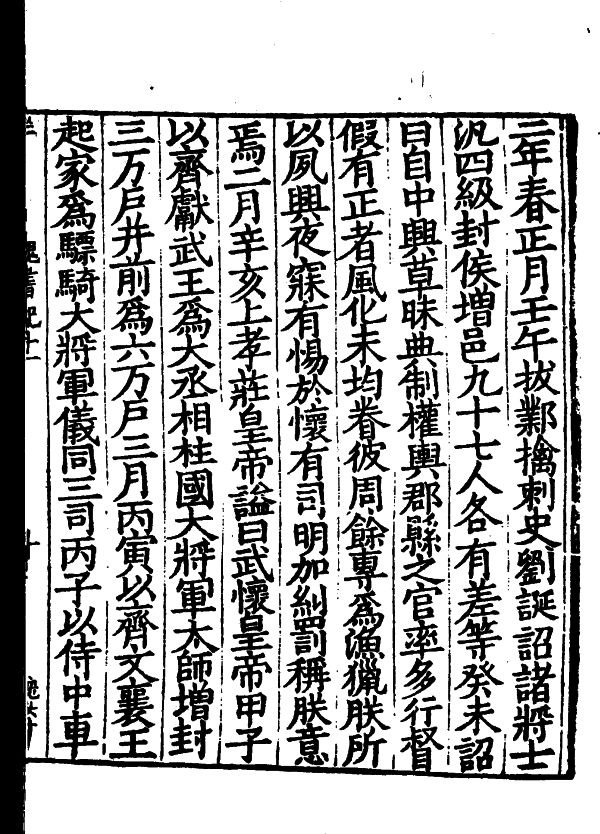 三年春正月壬午拔鄴擒刺史劉誕詔諸將士
汎四級封侯增邑九十七人各有差等癸未詔
曰自中興草昧典制權輿郡縣之官率多行督
假有正者風化未均眷彼周餘專爲漁獵朕所
以夙興夜寐有惕於懷有司明加糾罰稱朕意
焉二月辛亥上孝莊皇帝謚曰武懷皇帝甲子
以齊獻武王爲大丞相柱國大將軍太師增封
三万戶并前爲六万戶三月丙寅以齊文襄王
起家爲驃騎大將軍儀同三司丙子以侍中車